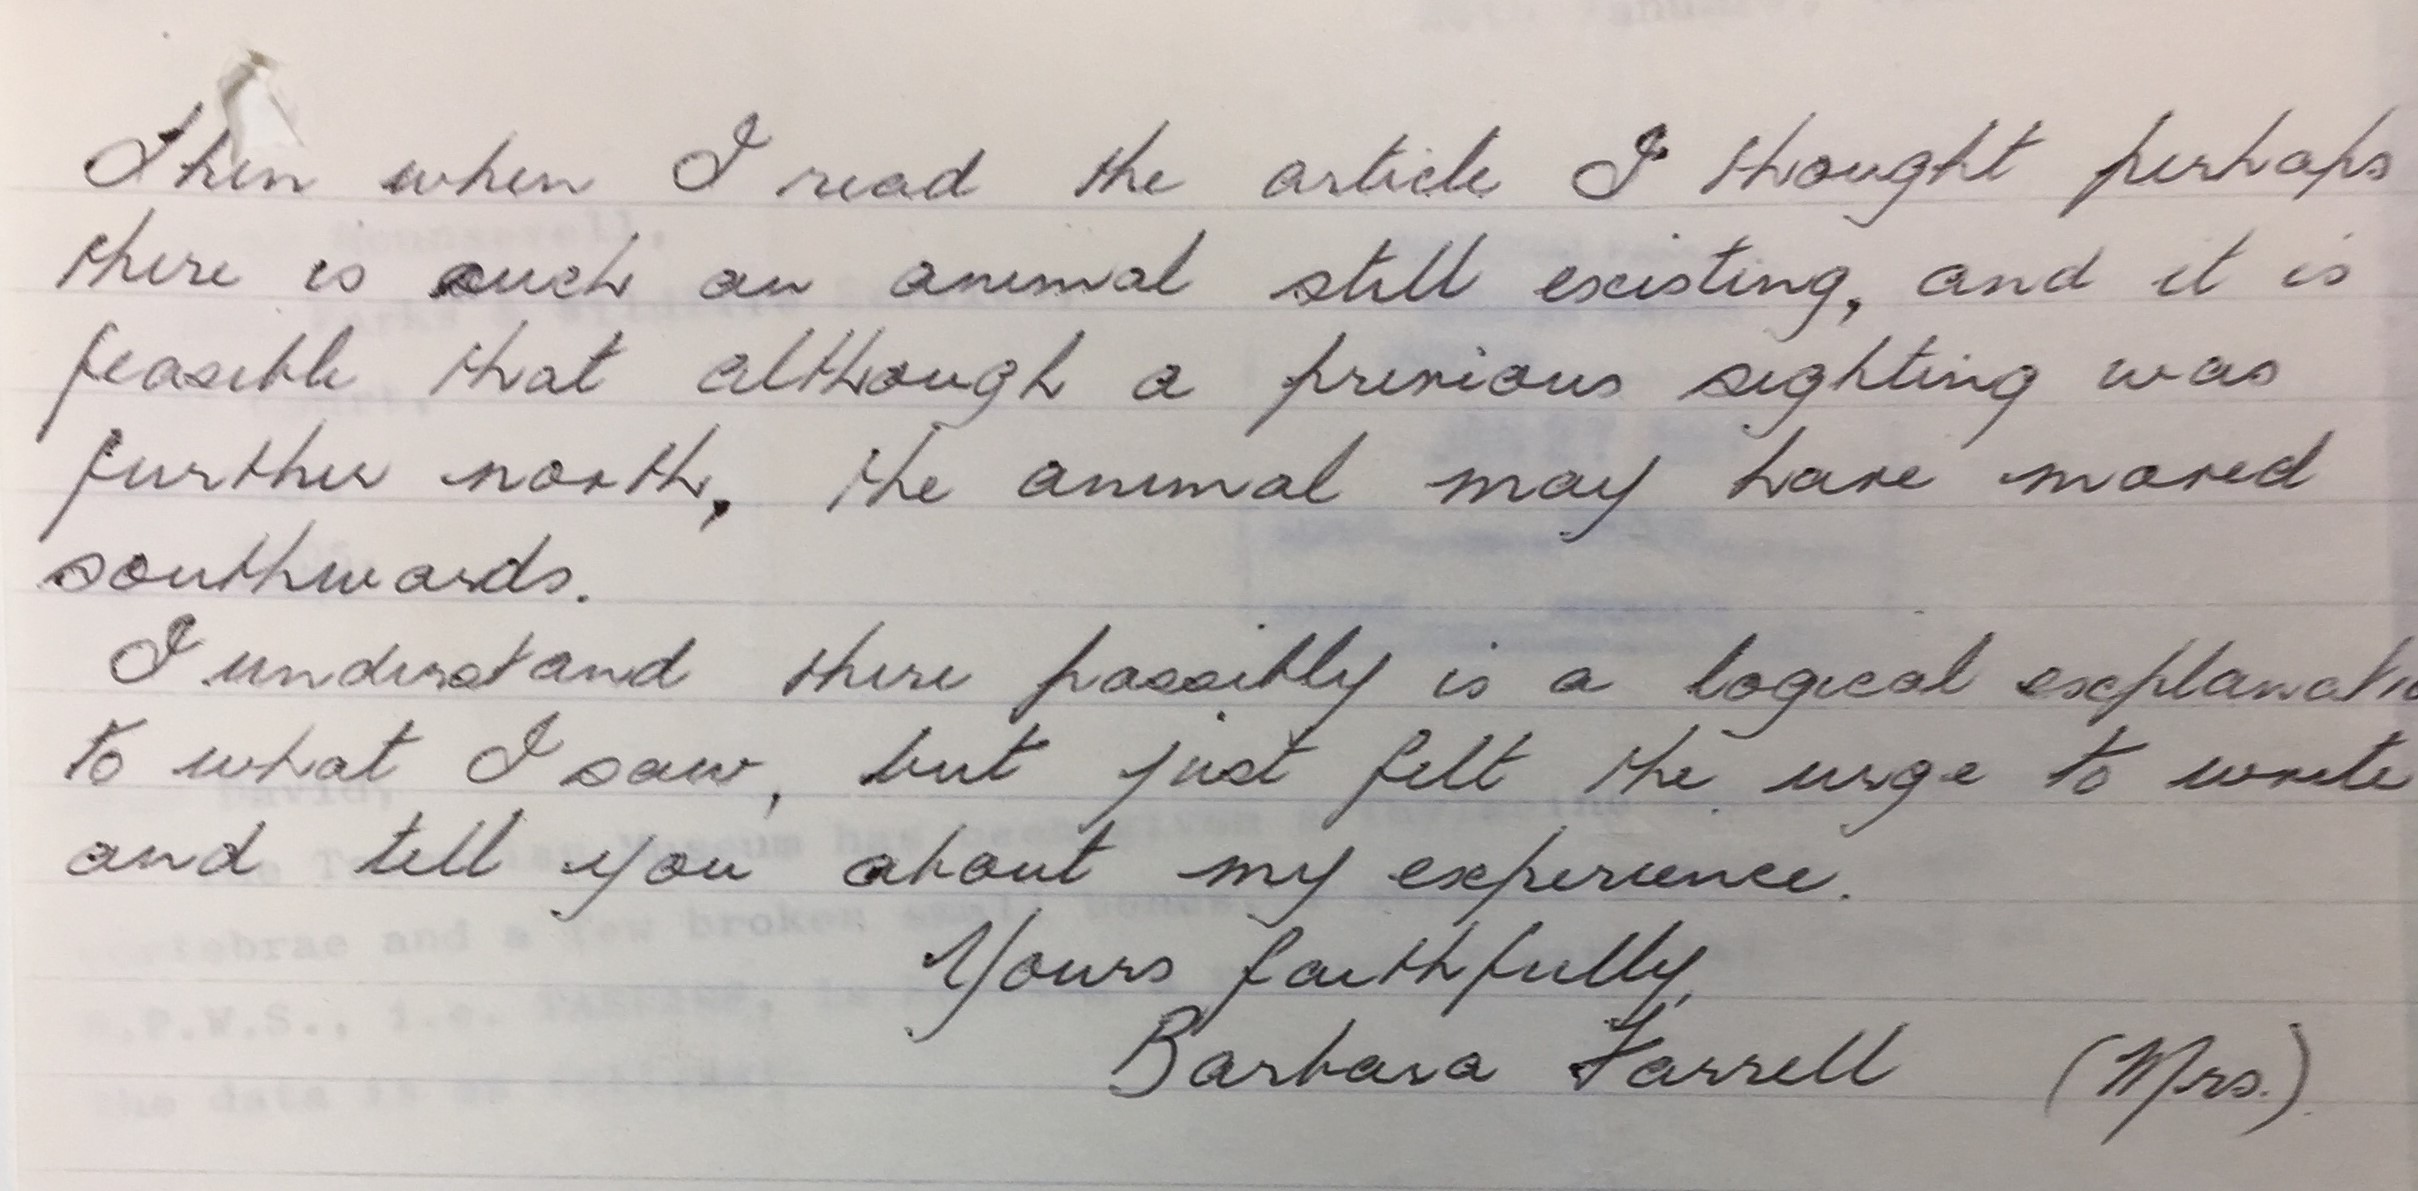 Then when I read the article I thought perhaps
there is such an animal still existing, and it is
feasible that although a previous sighting was
further north, the animal may have moved
southwards.
I understand there possibly is a logical explanatio
to what I saw, but just felt the urge to write
and tell you about my experience.
Yours faithfully,
Barbara Farrell (Mrs.)